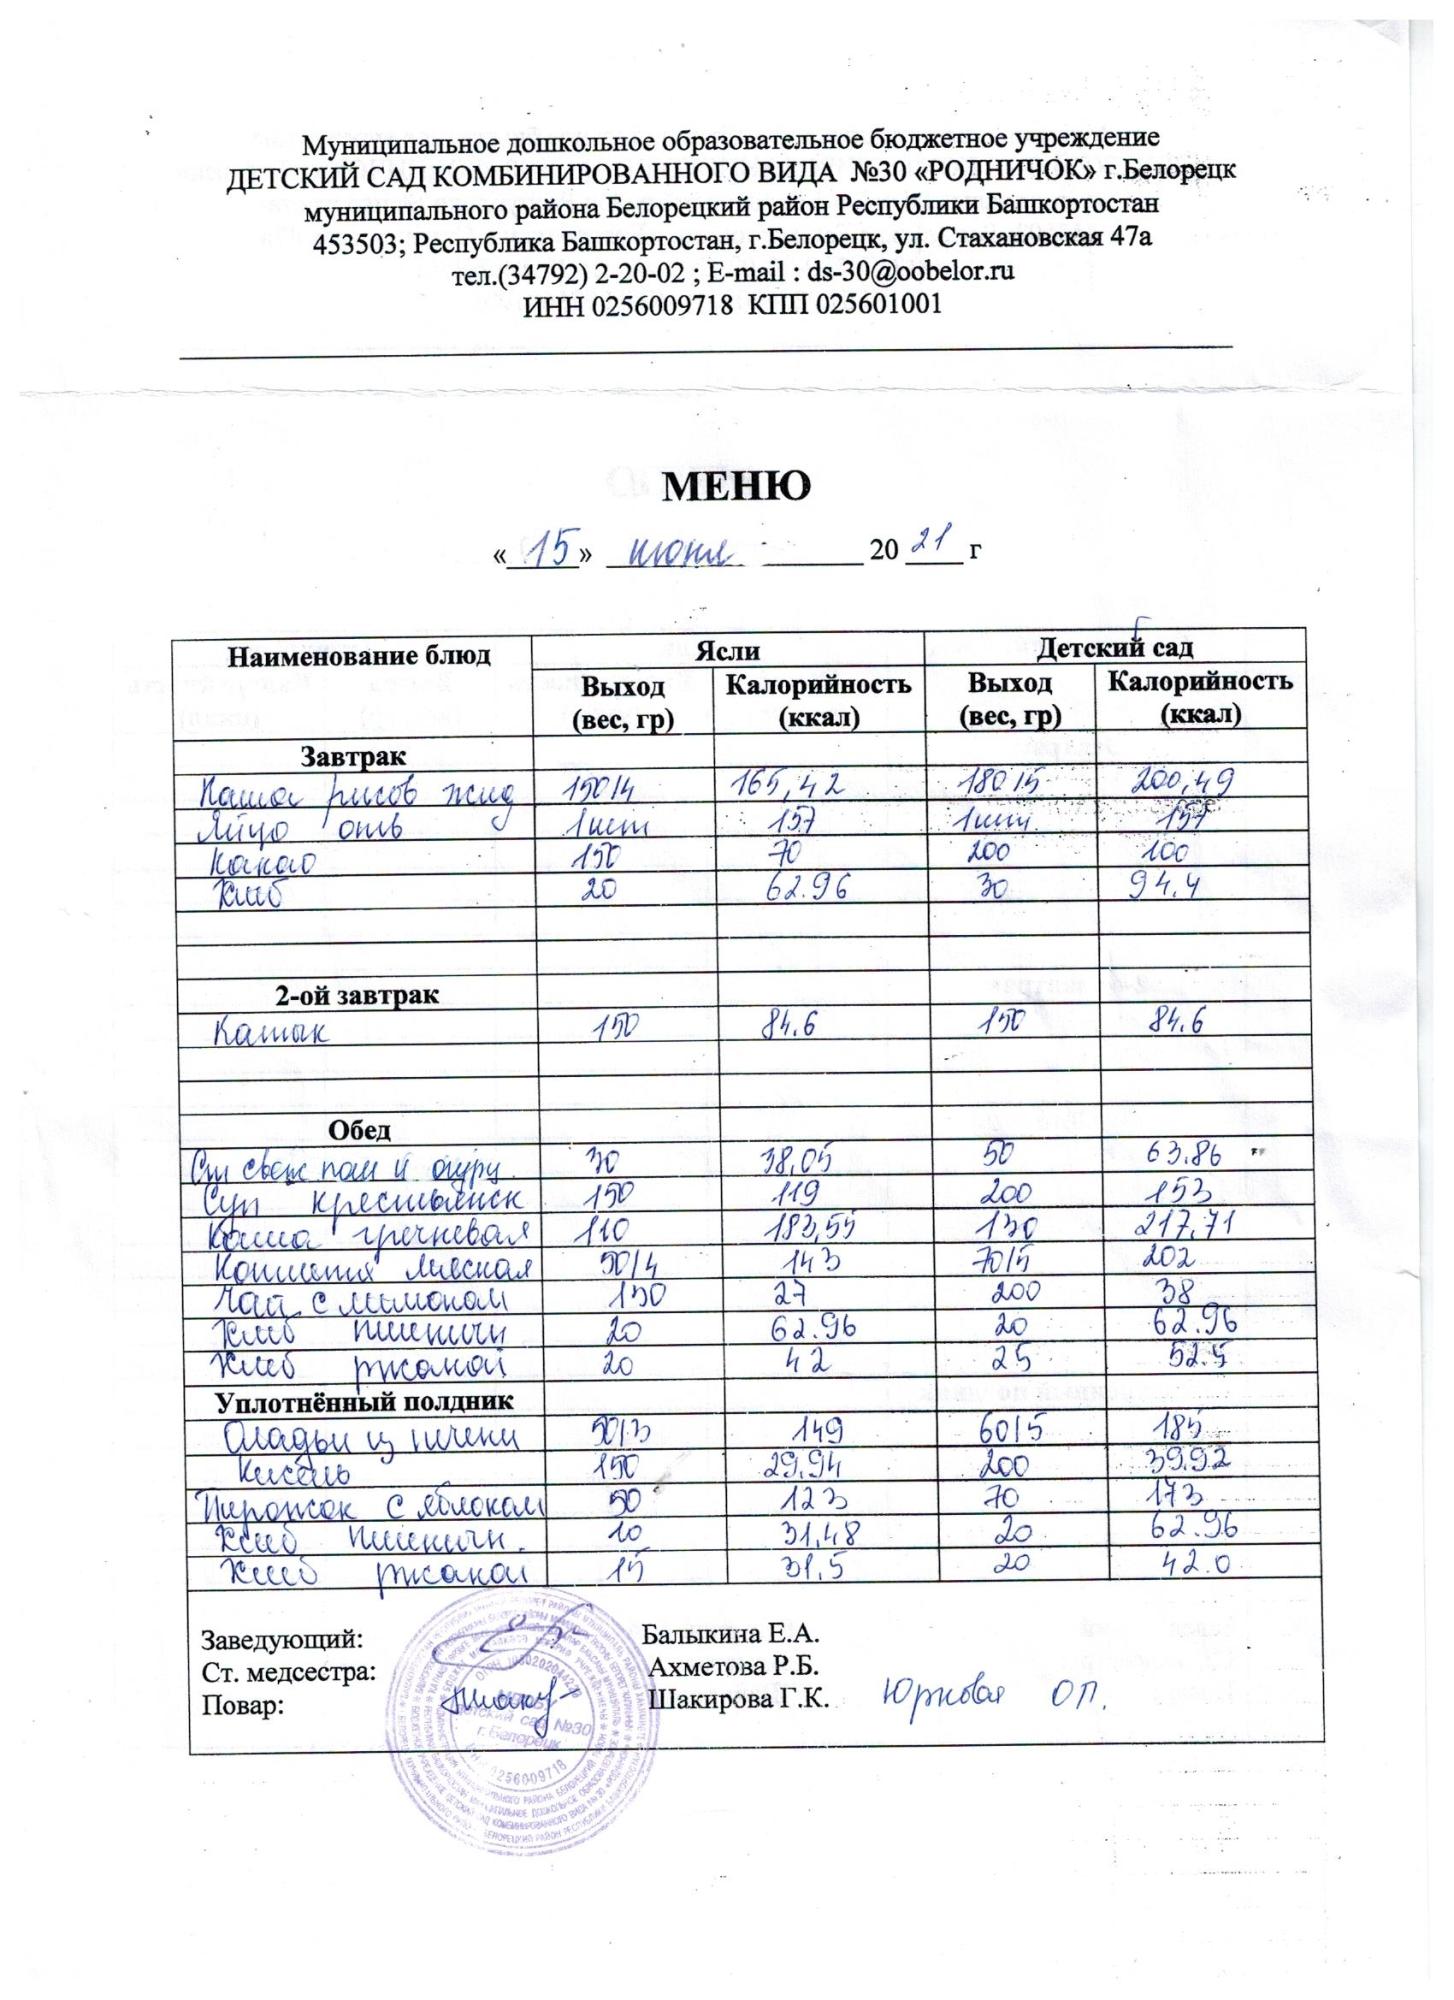 Муниципальное дошкольное образовательное бюджетное учреждение
ДЕТСКИЙ САД КОМБИНИРОВАННОГО ВИДА №30 «РОДНИЧОК» г.Белорецк
муниципального района Белорецкий район Республики Башкортостан
453503; Республика Башкортостан, г.Белорецк, ул. Стахановская 47а
тел.(34792) 2-20-02 ; E-mail : ds-30@oobelor.ru
ИНН 0256009718 КПП 025601001
МЕНЮ
« 15 » июня 20 21 г
Наименование блюд Ясли Детский сад
Выход (вес, гр) Калорийность (ккал) Выход (вес, гр) Калорийность (ккал)
Завтрак
Каша рисов жид 150/4 165,42 180/5 200,49
Яйцо отв 1шт 157 1шт 157
Какао 150 70 200 100
Хлеб 20 62.96 30 94.4
2-ой завтрак
Катык 150 84.6 150 84.6
Обед
Сл свеж пом и огурц. 30 38,05 50 63.86
Суп крестьянск 150 119 200 153
Каша гречневая 110 183,55 130 217,71
Котлета мясная 50/4 143 70/5 202
Чай с лимоном 150 27 200 38
Хлеб пшеничн 20 62.96 20 62.96
Хлеб ржаной 20 42 25 52.5
Уплотнённый полдник
Оладьи из печени 50/3 149 60/5 185
Кисель 150 29,94 200 39.92
Пирожок с яблоком 50 123 70 173
Хлеб пшеничн. 10 31,48 20 62.96
Хлеб ржаной 15 31,5 20 42.0
Заведующий: Балыкина Е.А.
Ст. медсестра: Ахметова Р.Б.
Повар: Шакирова Г.К. Юркова О П.
детский сад №30
г. Белорецк
0256009718